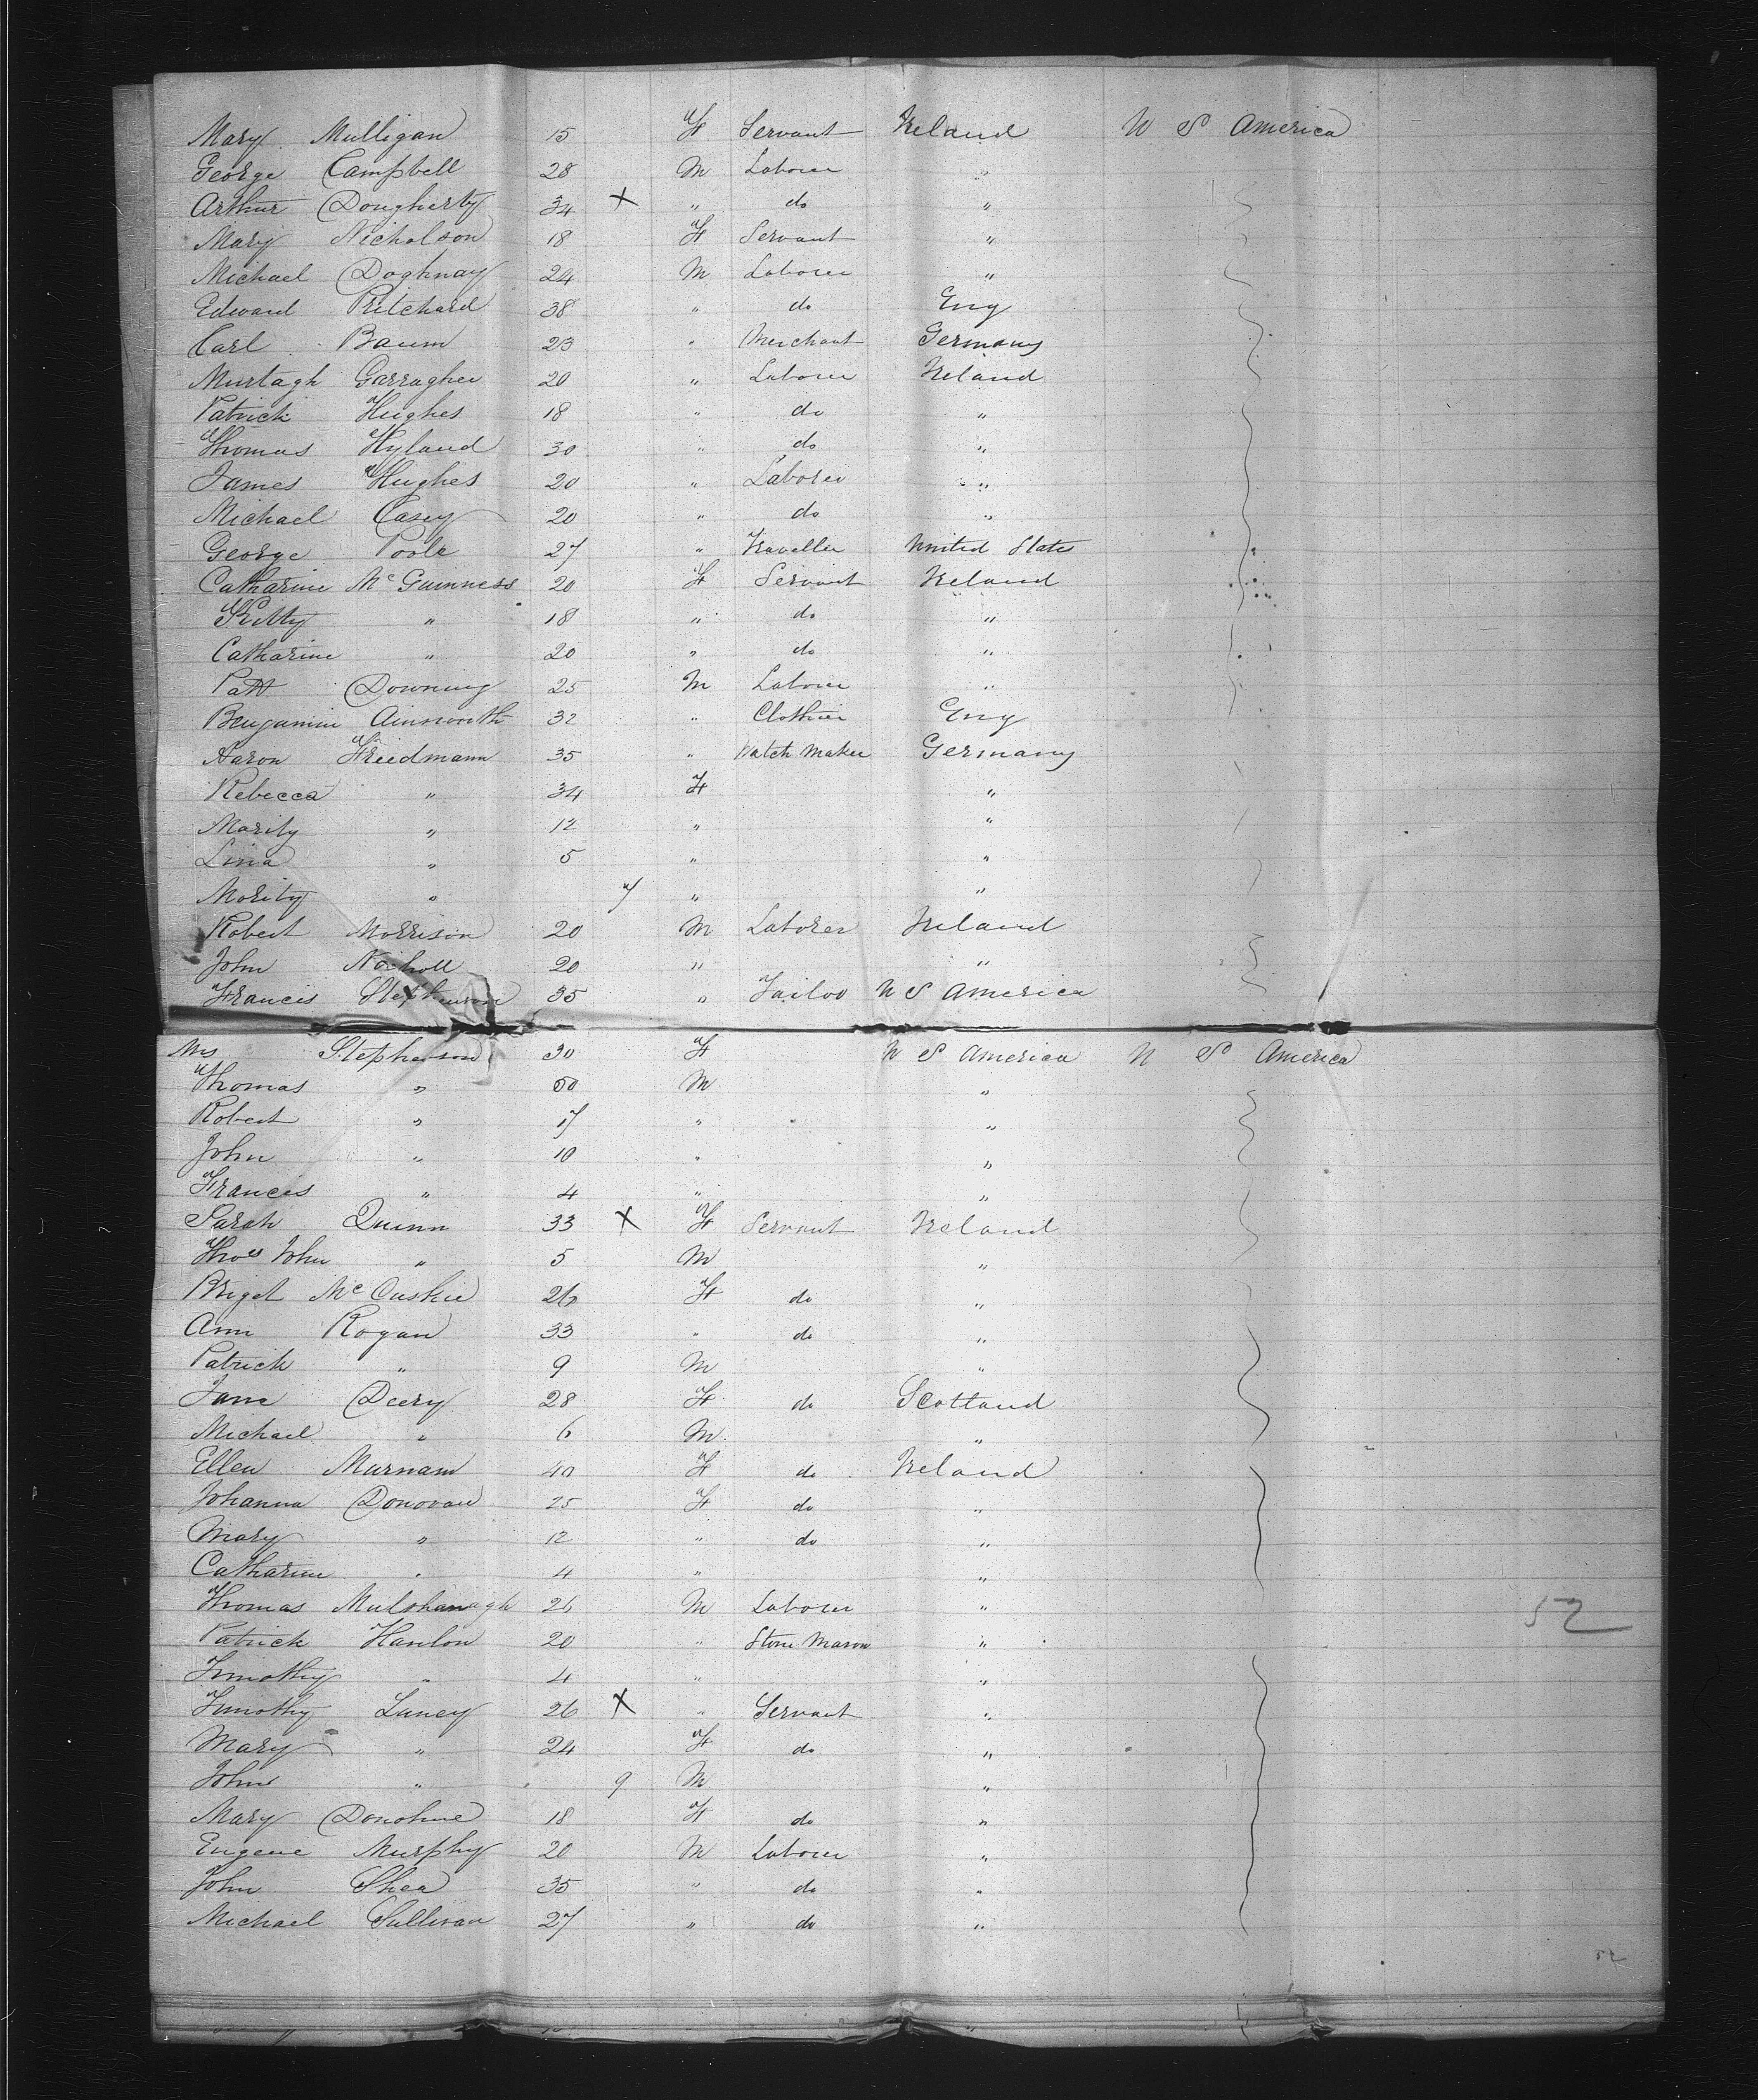 Mary Mulligan 15 F Servant Ireland U S America
George Campbell 28 M Laborer "
Arthur Dougherty 34 X " do "
Mary Nicholson 18 F Servant "
Michael Doghnay 24 M Laborer "
Edward Pritchard 38 " do Eng
Carl Baum 23 " Merchant Germany
Murtagh Garragher 20 " Laborer Ireland
Patrick Hughes 18 " do "
Thomas Hyland 30 " do "
James Hughes 20 " Laborer "
Michael Casey 20 " do "
George Poole 27 " Traveller United States
Catharine McGuinness 20 F Servant Ireland
Kitty " 18 " do "
Catharine " 20 " do "
Patt Downing 25 M Laborer "
Benjamin Ainsworth 32 " Clothier Eng
Aaron Friedmann 35 " Watch Maker Germany
Rebecca " 34 F "
Marity " 12 " "
Lina " 5 " "
Mority " 7 " "
Robert Morrison 20 M Laborer Ireland
John Nicholl 20 " "
Francis Stephenson 35 " Tailor U S America
Mrs Stephenson 30 F U S America U S America
Thomas " M "
Robert " 17 " "
John " 10 " "
Frances " 4 " "
Sarah Quinn 33 X F Servant Ireland
Thos John " 5 M "
Briget McCuskie 26 F do "
Ann Rogan 33 " do "
Patrick " 9 M "
Jane Deery 28 F do Scotland
Michael " 6 M "
Ellen Murnam 40 F do Ireland
Johanna Donovan 25 F do "
Mary " 12 " do "
Catharine " 4 " "
Thomas Mulshanagh 26 M Laborer "
Patrick Hanlon 20 " Stone Mason " 52
Timothy " 4 " "
Timothy Luney 26 X " Servant "
Mary " 24 F do "
John " 9 M "
Mary Donohue 18 F do "
Eugene Murphy 20 M Laborer "
John Shea 35 " do "
Michael Sullivan 27 " do "
52